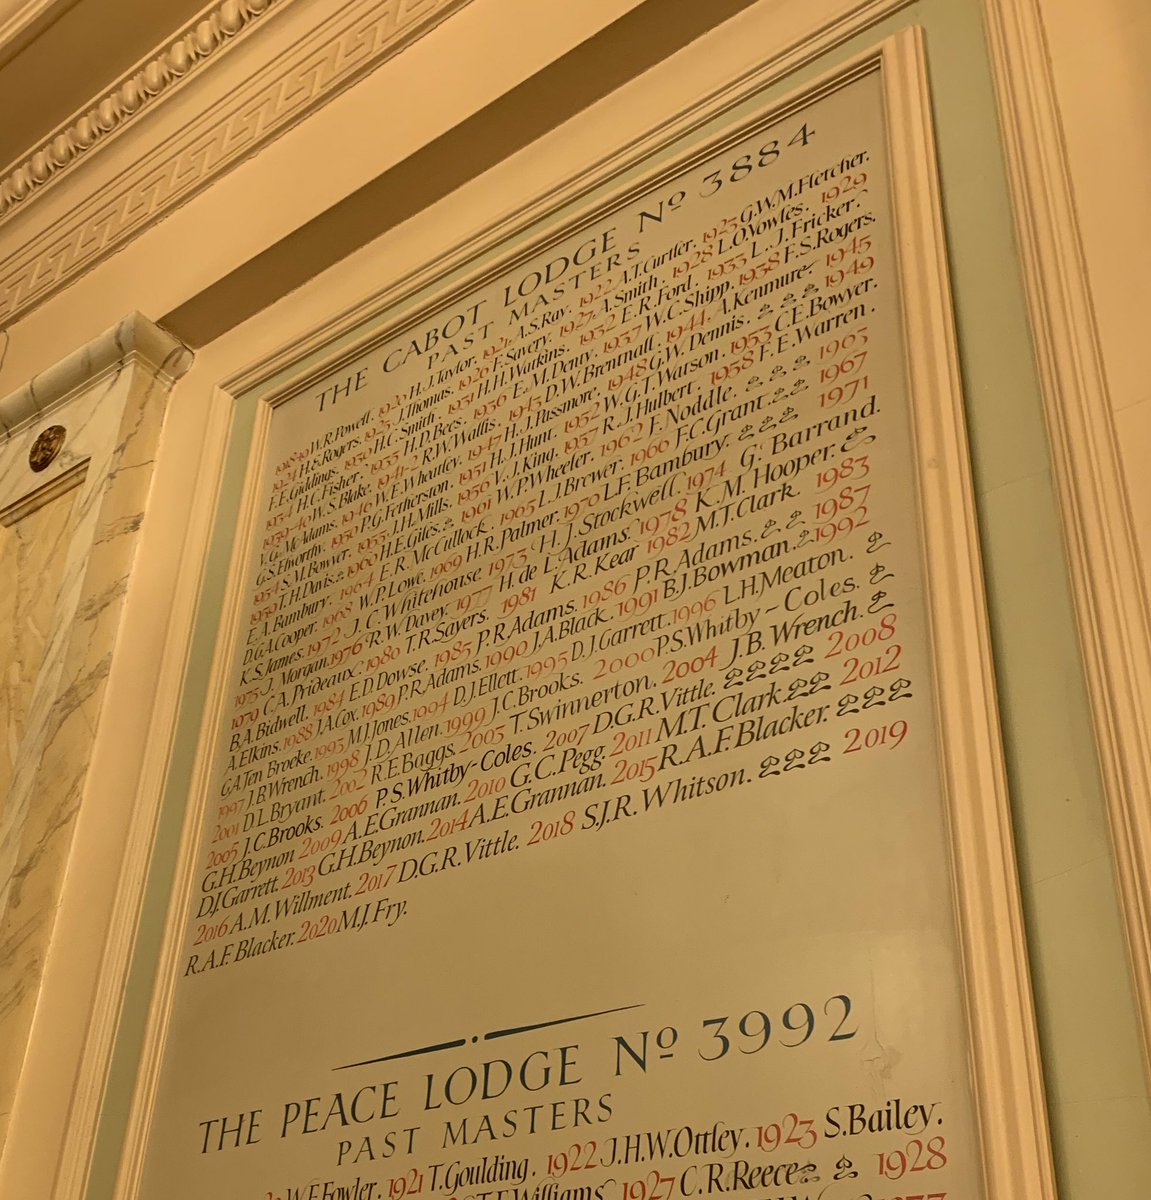 THE CABOT LODGE Nº 3884
PAST MASTERS
1918-19 W.R.Powell. 1920 H.J.Taylor. 1921 A.S.Ray. 1922 A.T.Curtler. 1923 G.W.M.Fletcher.
1924 H.E.Rogers. 1925 J.Thomas. 1926 F.Savery. 1927 A.Smith. 1928 L.O.Vowles. 1929
F.E.Giddings. 1930 H.C.Smith. 1931 H.H.Watkins. 1932 E.R.Ford. 1933 L.J.Fricker.
1934 H.C.Fisher. 1935 H.D.Bees. 1936 E.M.Denty. 1937 W.C.Shipp. 1938 F.S.Rogers.
1939-40 W.S.Blake. 1941-2 R.W.Wallis. 1943 D.W.Brentnall. 1944 A.Kenmure. 1945
V.G.McAdams. 1946 W.E.Wheatley. 1947 H.J.Passmore. 1948 G.W.Dennis. 1949
G.S.Elworthy. 1950 P.G.Fetherston. 1951 H.J.Hunt. 1952 W.G.T.Watson. 1953 C.E.Bowyer.
1954 S.M.Bowyer. 1955 J.H.Mills. 1956 V.J.King. 1957 R.J.Hulbert. 1958 F.E.Warren.
1959 T.H.Davis. 1960 H.E.Giles. 1961 W.P.Wheeler. 1962 F.Noddle. 1963
E.A.Bambury. 1964 E.R.McCullock. 1965 L.J.Brewer. 1966 F.C.Grant. 1967
D.G.A.Cooper. 1968 W.P.Lowe. 1969 H.R.Palmer. 1970 L.F.Bambury. 1971
K.S.James. 1972 J.C.Whitehouse. 1973 H.J.Stockwell. 1974 G. Barrand.
1975 J.Morgan. 1976 R.W.Davey. 1977 H.de L.Adams. 1978 K.M.Hooper.
1979 C.A.Prideaux. 1980 T.R.Sayers. 1981 K.R.Kear 1982 M.T.Clark. 1983
B.A.Bidwell. 1984 E.D.Dowse. 1985 P.R.Adams. 1986 P.R.Adams. 1987
A.Elkins. 1988 J.A.Cox. 1989 P.R.Adams. 1990 J.A.Black. 1991 B.J.Bowman. 1992
G.A.Ten Broeke. 1993 M.J.Jones. 1994 D.J.Ellett. 1995 D.J.Garrett. 1996 L.H.Meaton.
1997 J.B.Wrench. 1998 J.D.Allen. 1999 J.C.Brooks. 2000 P.S.Whitby-Coles.
2001 D.L.Bryant. 2002 R.E.Baggs. 2003 T.Swinnerton. 2004 J.B.Wrench.
2005 J.C.Brooks. 2006 P.S.Whitby-Coles. 2007 D.G.R.Vittle. 2008
G.H.Beynon 2009 A.E.Grannan. 2010 G.C.Pegg. 2011 M.T.Clark 2012
D.J.Garrett. 2013 G.H.Beynon. 2014 A.E.Grannan. 2015 R.A.F.Blacker.
2016 A.M.Willment. 2017 D.G.R.Vittle. 2018 S.J.R.Whitson. 2019
R.A.F.Blacker. 2020 M.J.Fry.
THE PEACE LODGE Nº 3992
PAST MASTERS
W.E.Fowler. 1921 T.Goulding. 1922 J.H.W.Ottley. 1923 S.Bailey.
Williams 1927 C.R.Reece 1928